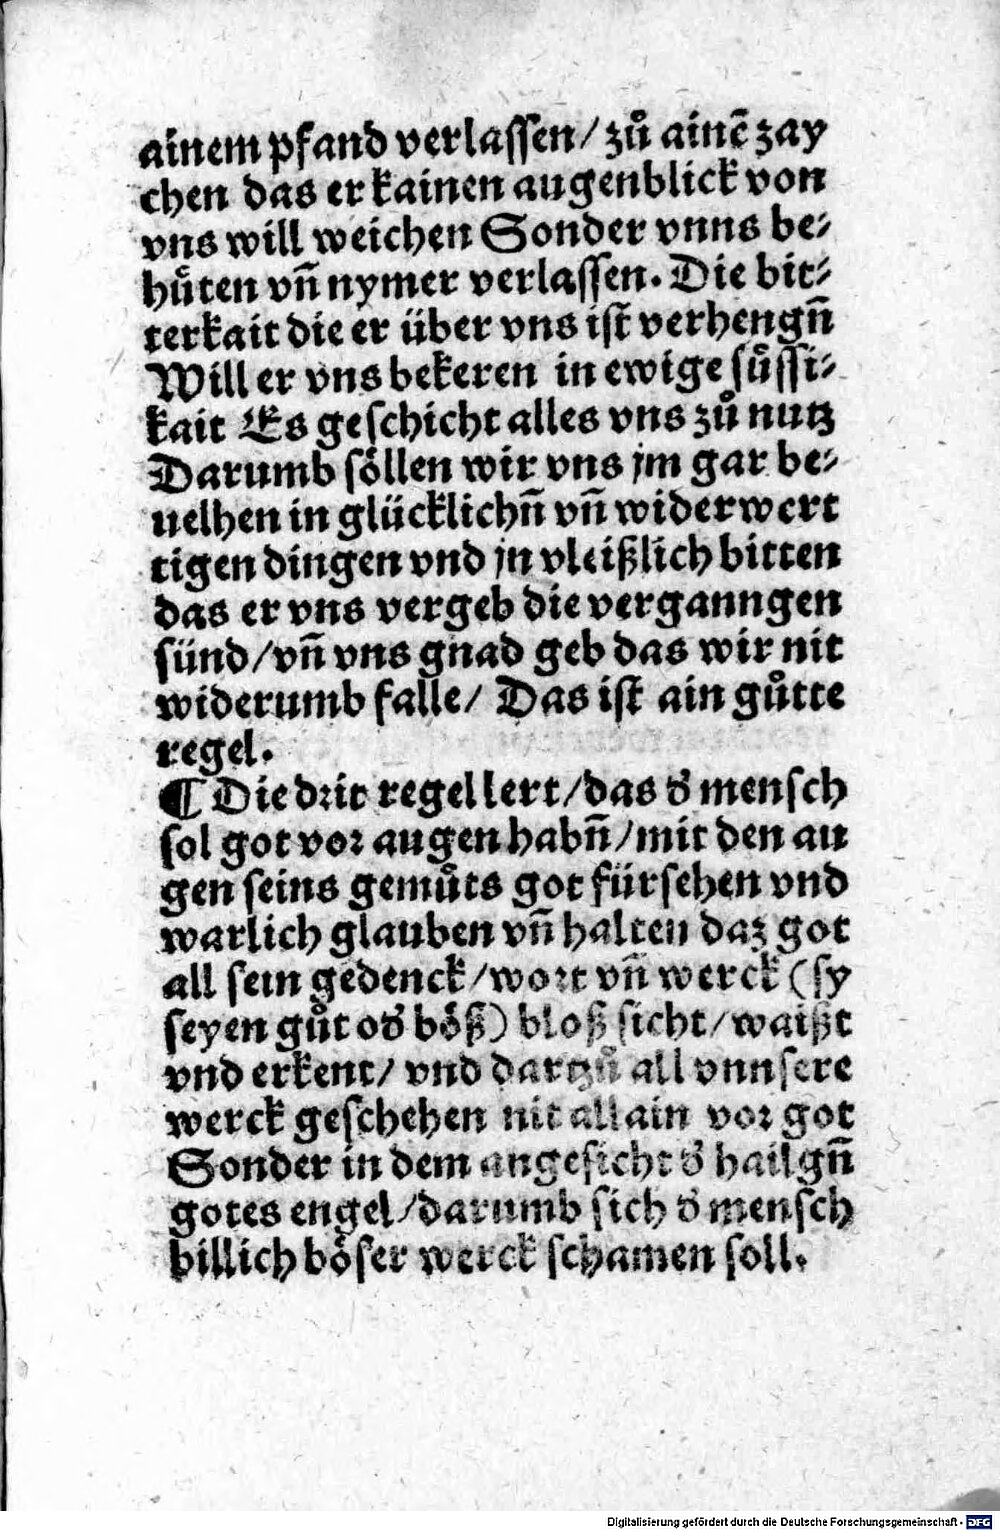 ainem pfand verlassen/ zů ainē zay
chen das er kainen augenblick von
vns will weichen Sonder vnns be⸗
hůten vn̄ nymer verlassen. Die bit⸗
terkait die er über vns ist verhengn̄
Will er vns bekeren in ewige sůssi⸗
kait Es geschicht alles vns zů nutz
Darumb söllen wir vns jm gar be⸗
uelhen in glücklichn̄ vn̄ widerwert
tigen dingen vnd jn vleißlich bitten
das er vns vergeb die verganngen
sünd/vn̄ vns gnad geb das wir nit
widerumb falle/ Das ist ain gůtte
regel.
¶ Die drit regel lert/das d̕ mensch
sol got vor augen habn̄/mit den au
gen seins gemůts got fürsehen vnd
warlich glauben vn̄ halten daz got
all sein gedenck/wort vn̄ werck (sy
seyen gůt od̕ böß) bloß sicht/waißt
vnd erkent/ vnd dartzů all vnnsere
werck geschehen nit allain vor got
Sonder in dem angesicht d̕ hailgn̄
gotes engel/darumb sich d̕ mensch
billich böser werck schamen soll.
Digitalisierung gefördert durch die Deutsche Forschungsgemeinschaft - DFG